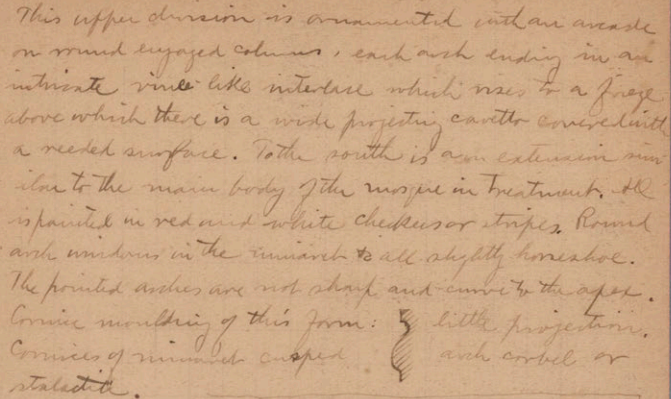 This upper division is ornamented with an arcade
on round engaged columns, each arch ending in an
intricate vine like interlace which rises to a frieze
above which there is a wide projecting cavetto covered with
a reeded surface. To the south is an extension sim
ilar to the main body of the mosque in treatment. All
is painted in red and white checkers or stripes. Round
arch windows in the minaret & all slightly horseshoe.
The pointed arches are not sharp and curve to the apex.
Cornice moulding of this form: little projection.
Cornices of minaret cusped arch corbel or
stalactite.